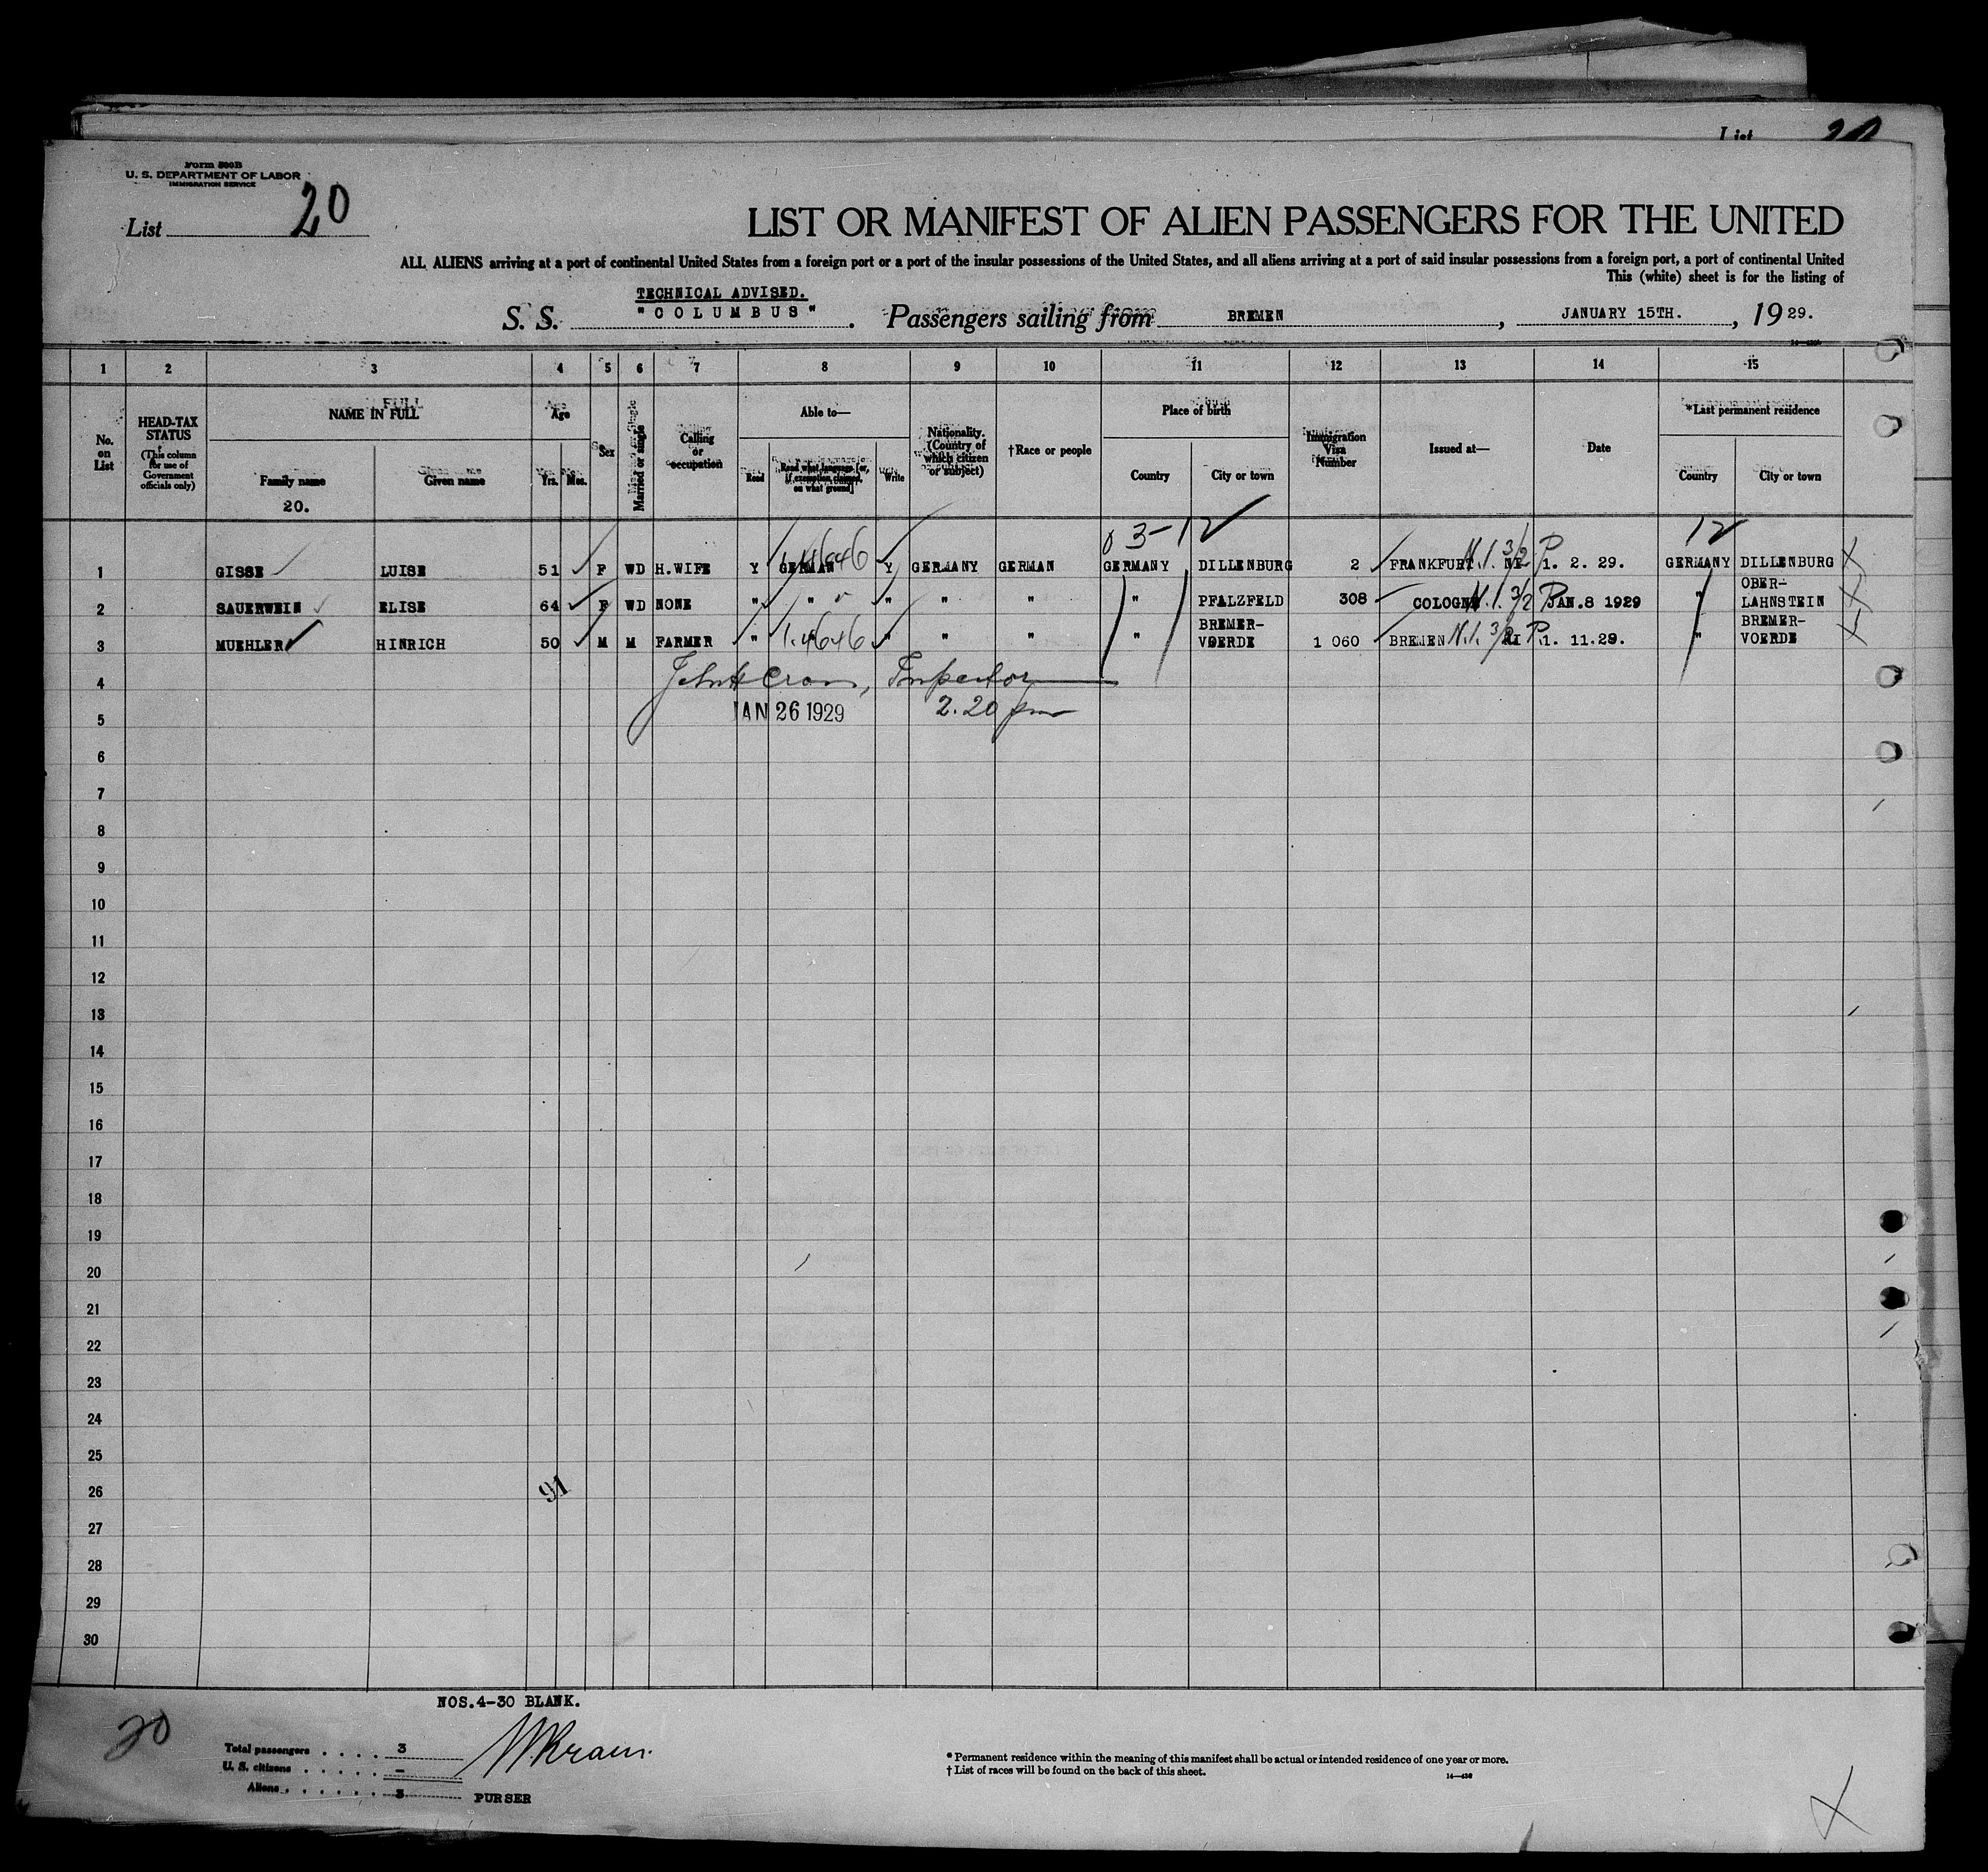 List 20
Form 500B
U. S. DEPARTMENT OF LABOR
IMMIGRATION SERVICE
List 20
LIST OR MANIFEST OF ALIEN PASSENGERS FOR THE UNITED
ALL ALIENS arriving at a port of continental United States from a foreign port or a port of the insular possessions of the United States, and all aliens arriving at a port of said insular possessions from a foreign port, a port of continental United
This (white) sheet is for the listing of
TECHNICAL ADVISED.
S. S. "COLUMBUS". Passengers sailing from BREMEN, JANUARY 15TH., 1929.
1 2 3 4 5 6 7 8 9 10 11 12 13 14 15
No. on List
HEAD-TAX STATUS (This column for use of Government officials only)
NAME IN FULL
Family name
Given name
20.
Age
Yrs. Mos.
Sex
Married or single
Calling or occupation
Able to—
Read
Read what language [or, if exemption claimed, on what ground]
Write
Nationality. (Country of which citizen or subject)
†Race or people
Place of birth
Country
City or town
Immigration Visa Number
Issued at—
Date
*Last permanent residence
Country
City or town
3-12
12
1 GISSE LUISE 51 F WD H.WIFE Y GERMAN Y GERMANY GERMAN GERMANY DILLENBURG 2 FRANKFURT N.I. 3/2 P. 1. 2. 29. GERMANY DILLENBURG
2 SAUERWEIN ELISE 64 F WD NONE " " " " " " PFALZFELD 308 COLOGNE N.I. 3/2 P. JAN.8 1929 " OBER-LAHNSTEIN
3 MUEHLER HINRICH 50 M M FARMER " 1.4646 " " " " BREMER-VOERDE 1 060 BREMEN N.I. 3/2 P. 1. 11.29. " BREMER-VOERDE
4 Inspector
5 JAN 26 1929 2.20 pm
6
7
8
9
10
11
12
13
14
15
16
17
18
19
20
21
22
23
24
25
26 91
27
28
29
30
NOS.4-30 BLANK.
20
Total passengers . . . . 3
U. S. citizens . . . . . —
Aliens . . . . . . 3
PURSER
* Permanent residence within the meaning of this manifest shall be actual or intended residence of one year or more.
† List of races will be found on the back of this sheet.